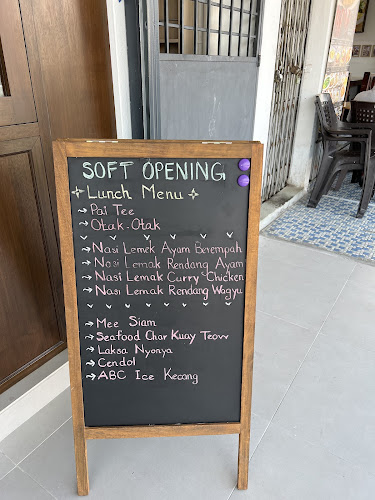 SOFT OPENING
Lunch Menu
Pai Tee
Otak-Otak
Nasi Lemak Ayam Berempah
Nasi Lemak Rendang Ayam
Nasi Lemak Curry Chicken
Nasi Lemak Rendang Wagyu
Mee Siam
Seafood Char Kuay Teow
Laksa Nyonya
Cendol
ABC Ice Kacang